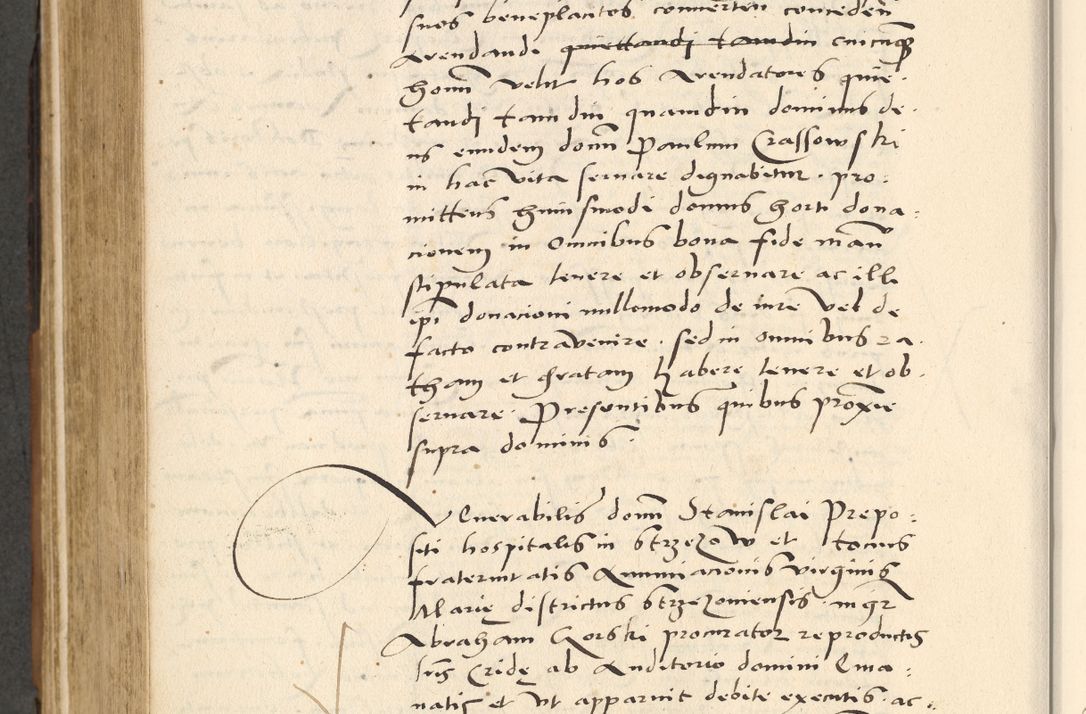 suos beneplacitos conuerten conceden
Arendandi quiettandi tamdiu cuicunq
homi velit hos Arendatores quie-
tandj tam diu quamdiu dominus de-
us eundem domn Paulum Crassowski
in hac vita seruare dignabitur. pro-
mittens huiusmodi domus horti dona-
cionem in Omnibus bona fide man
stipulata tenere et obseruare ac illi
ipi donacioni nullomodo de iure vel de
facto contrauenire. sed in omnibus ra-
tham et gratam habere tenere et ob-
seruare. Presentibus quibus proxie
supra dominis
Venerabilis domn Stanislai Prepo-
siti hospitalis in Strzezow et tocius
fraternitatis Annunciacionis virginis
Marię districtus Strzezouiensis mgr
Abraham Gorski procurator reproductis
lris Cridę ab Auditorio domini Ema-
natis et vt apparuit debite executis ac-